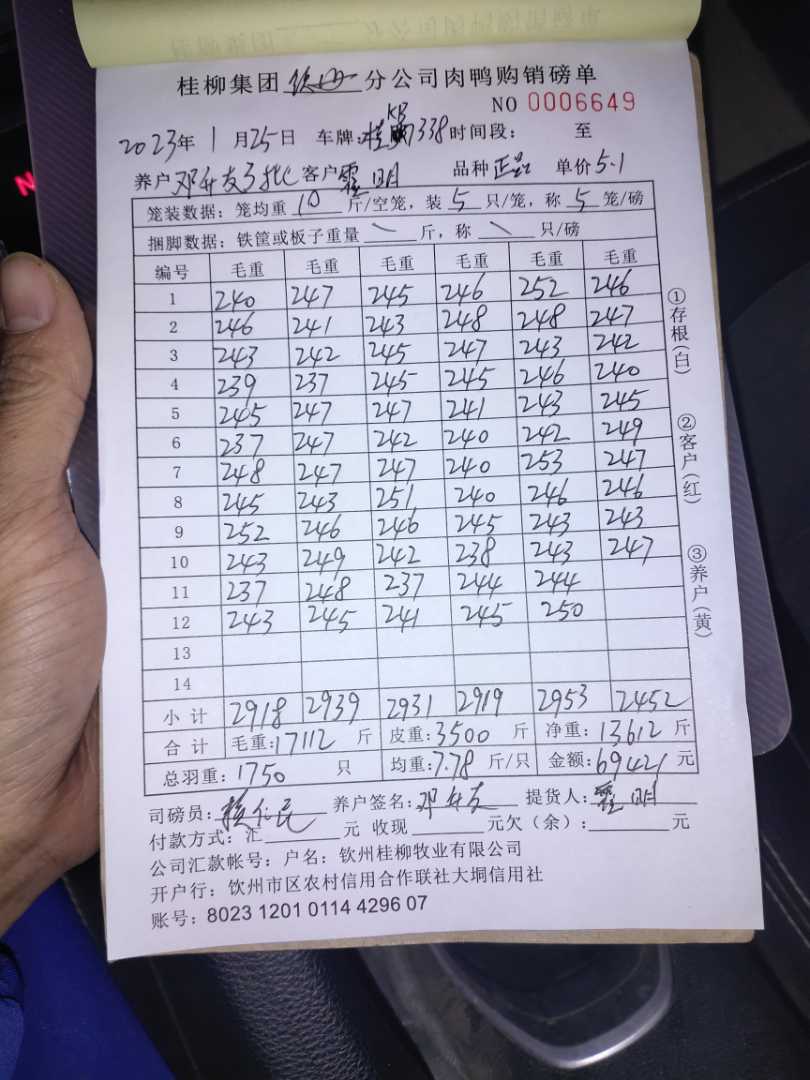 桂柳集团 钦州 分公司肉鸭购销磅单
NO 0006649
2023年 1 月25日 车牌:桂KB 338 时间段: 至
养户 邓升友3批 客户 霍明 品种 正品 单价5.1
笼装数据:笼均重 10 斤/空笼,装 5 只/笼,称 5 笼/磅
捆脚数据:铁筐或板子重量 \ 斤,称 \ 只/磅
编号 毛重 毛重 毛重 毛重 毛重 毛重
1 240 247 245 246 252 246
2 246 241 243 248 248 247
3 243 242 245 247 243 242
4 239 237 245 245 246 240
5 245 247 247 241 243 245
6 237 247 242 240 242 249
7 248 247 247 240 253 247
8 245 243 251 240 246 246
9 252 246 246 245 243 243
10 243 249 242 238 243 247
11 237 248 237 244 244
12 243 245 241 245 250
13
14
小计 2918 2939 2931 2919 2953 2452
合计 毛重:17112 斤 皮重:3500 斤 净重:13612 斤
总羽重:1750 只 均重:7.78 斤/只 金额:69421 元
①存根(白)
②客户(红)
③养户(黄)
司磅员: 养户签名:邓升友 提货人:霍明
付款方式:汇 元 收现 元欠(余): 元
公司汇款帐号:户名:钦州桂柳牧业有限公司
开户行:钦州市区农村信用合作联社大垌信用社
账号:8023 1201 0114 4296 07